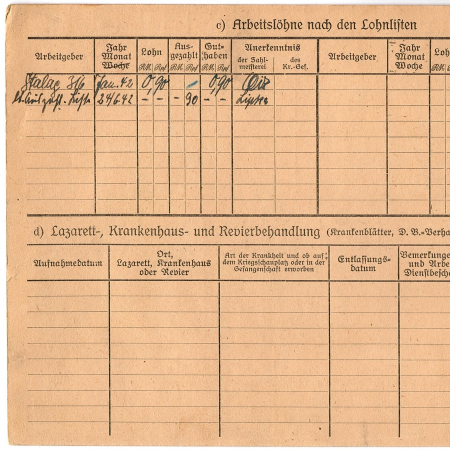 c) Arbeitslöhne nach den Lohnlisten
Arbeitgeber
Jahr Monat Woche
Lohn
R.M. Rpf
Aus-gezahlt
R.M. Rpf
Gut-haben
R.M. Rpf
Anerkenntnis
der Zahl-meisterei
des Kr.-Gef.
Arbeitgeber
Jahr Monat Woche
Loh
R.M.
Stalag Jan. 42 0,90 — 0,90
24/6 42 - - - 90 - -
d) Lazarett-, Krankenhaus- und Revierbehandlung (Krankenblätter, D. B.-Verha
Aufnahmedatum
Ort,
Lazarett, Krankenhaus
oder Revier
Art der Krankheit und ob auf
dem Kriegsschauplatz oder in der
Gefangenschaft erworben
Entlassungs-
datum
Bemerkunge
und Arbe
Dienstbesch